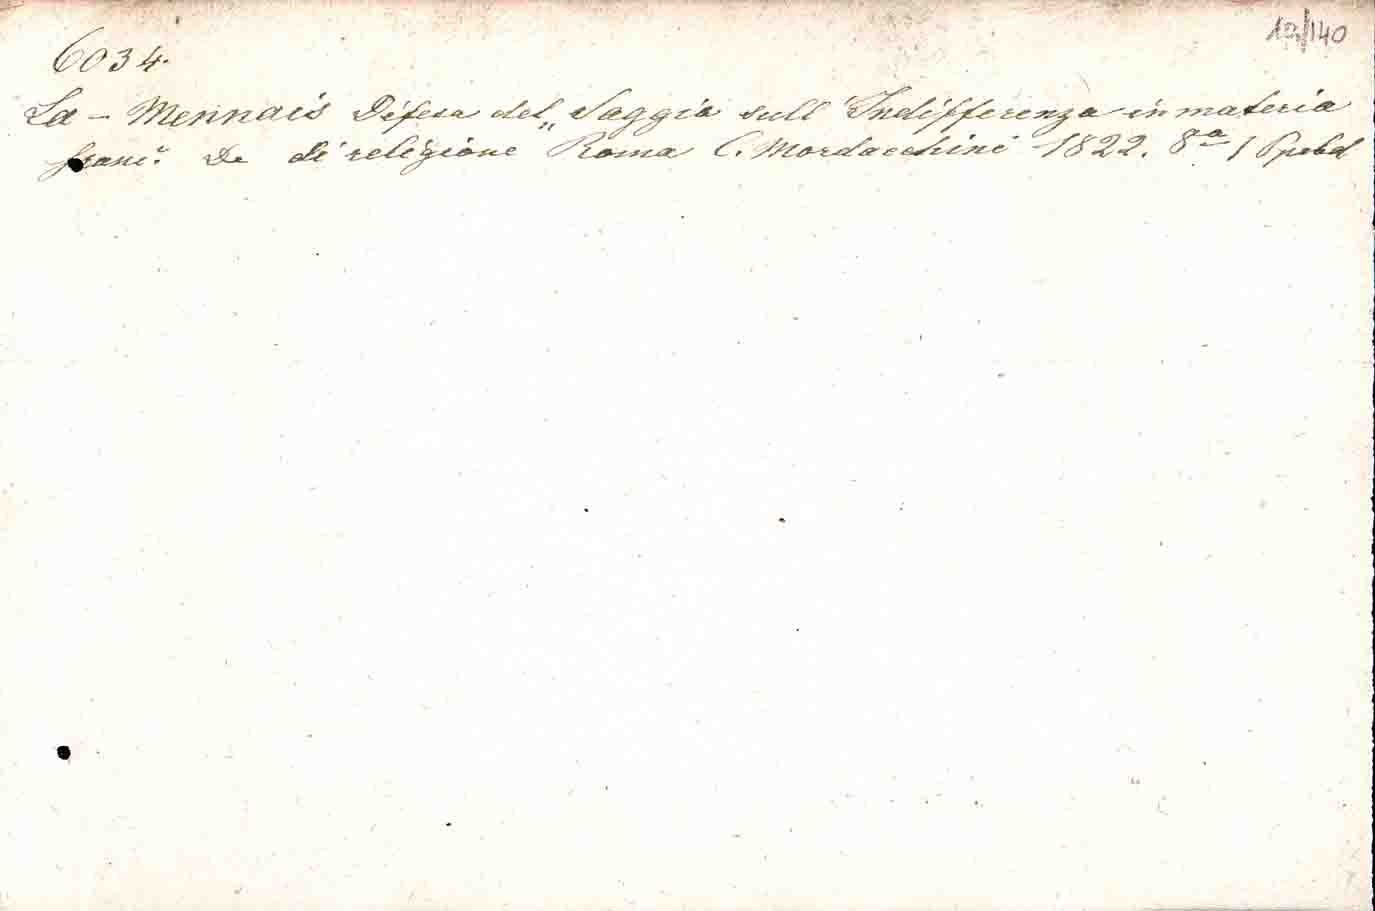 /140
6034.
La - Mennais Difesa del „Saggio sull Indifferenza in materia
franc. De di religione Roma C. Mordacchini 1822. 8° 1 Ppebd